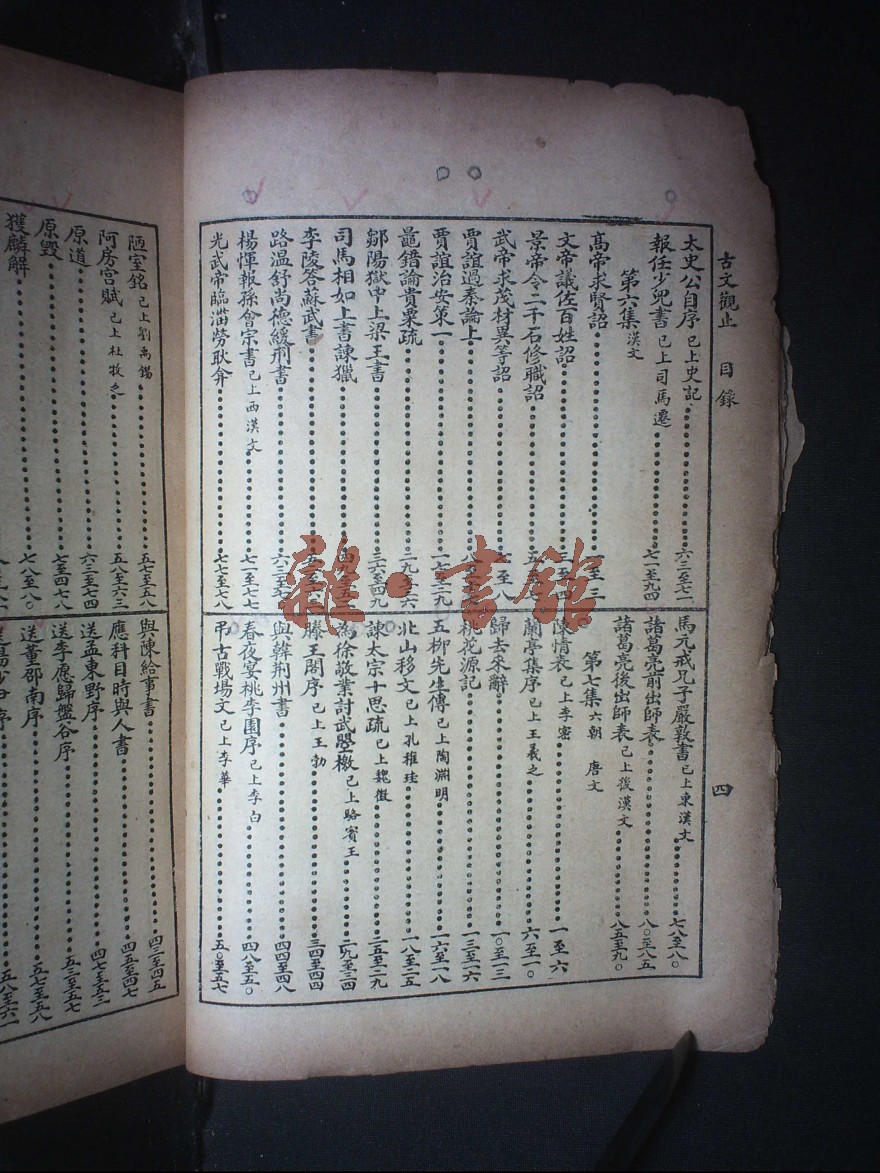 古文觀止 目錄
四
太史公自序 已上史記 六三至七一
報任少卿書 已上司馬遷 七一至九四
第六集 漢文
高帝求賢詔 一至三
文帝議佐百姓詔 三至四
景帝令二千石修職詔
武帝求茂材異等詔 至八
賈誼過秦論上
賈誼治安策一 一七至二九
鼂錯論貴粟疏 二九至三六
鄒陽獄中上梁王書 三六至四九
司馬相如上書諫獵
李陵答蘇武書
路溫舒尚德緩刑書 六三至七一
楊惲報孫會宗書 已上西漢文 七一至七七
光武帝臨淄勞耿弇 七七至七八
馬元戒兄子嚴敦書 已上東漢文 七八至八〇
諸葛亮前出師表 八〇至八五
諸葛亮後出師表 已上後漢文 八五至九〇
第七集 六朝 唐文
陳情表 已上李密 一至六
蘭亭集序 已上王羲之 六至一〇
歸去來辭 一〇至一三
桃花源記 一三至一六
五柳先生傳 已上陶淵明 一六至一八
北山移文 已上孔稚珪 一八至二五
諫太宗十思疏 已上魏徵 二五至二九
為徐敬業討武曌檄 已上駱賓王 二九至三四
滕王閣序 已上王勃 三四至四四
與韓荆州書 四四至四八
春夜宴桃李園序 已上李白 四八至五〇
弔古戰場文 已上李華 五〇至五七
陋室銘 已上劉禹錫 五七至五八
阿房宮賦 已上杜牧之 五八至六三
原道 六三至七四
原毀 七四至七八
獲麟解 七八至八〇
與陳給事書 四三至四五
應科目時與人書 四五至四七
送孟東野序 四七至五三
送李應歸盤谷序 五三至五七
送董邵南序 五七至五八
五八至六一
雜·書館